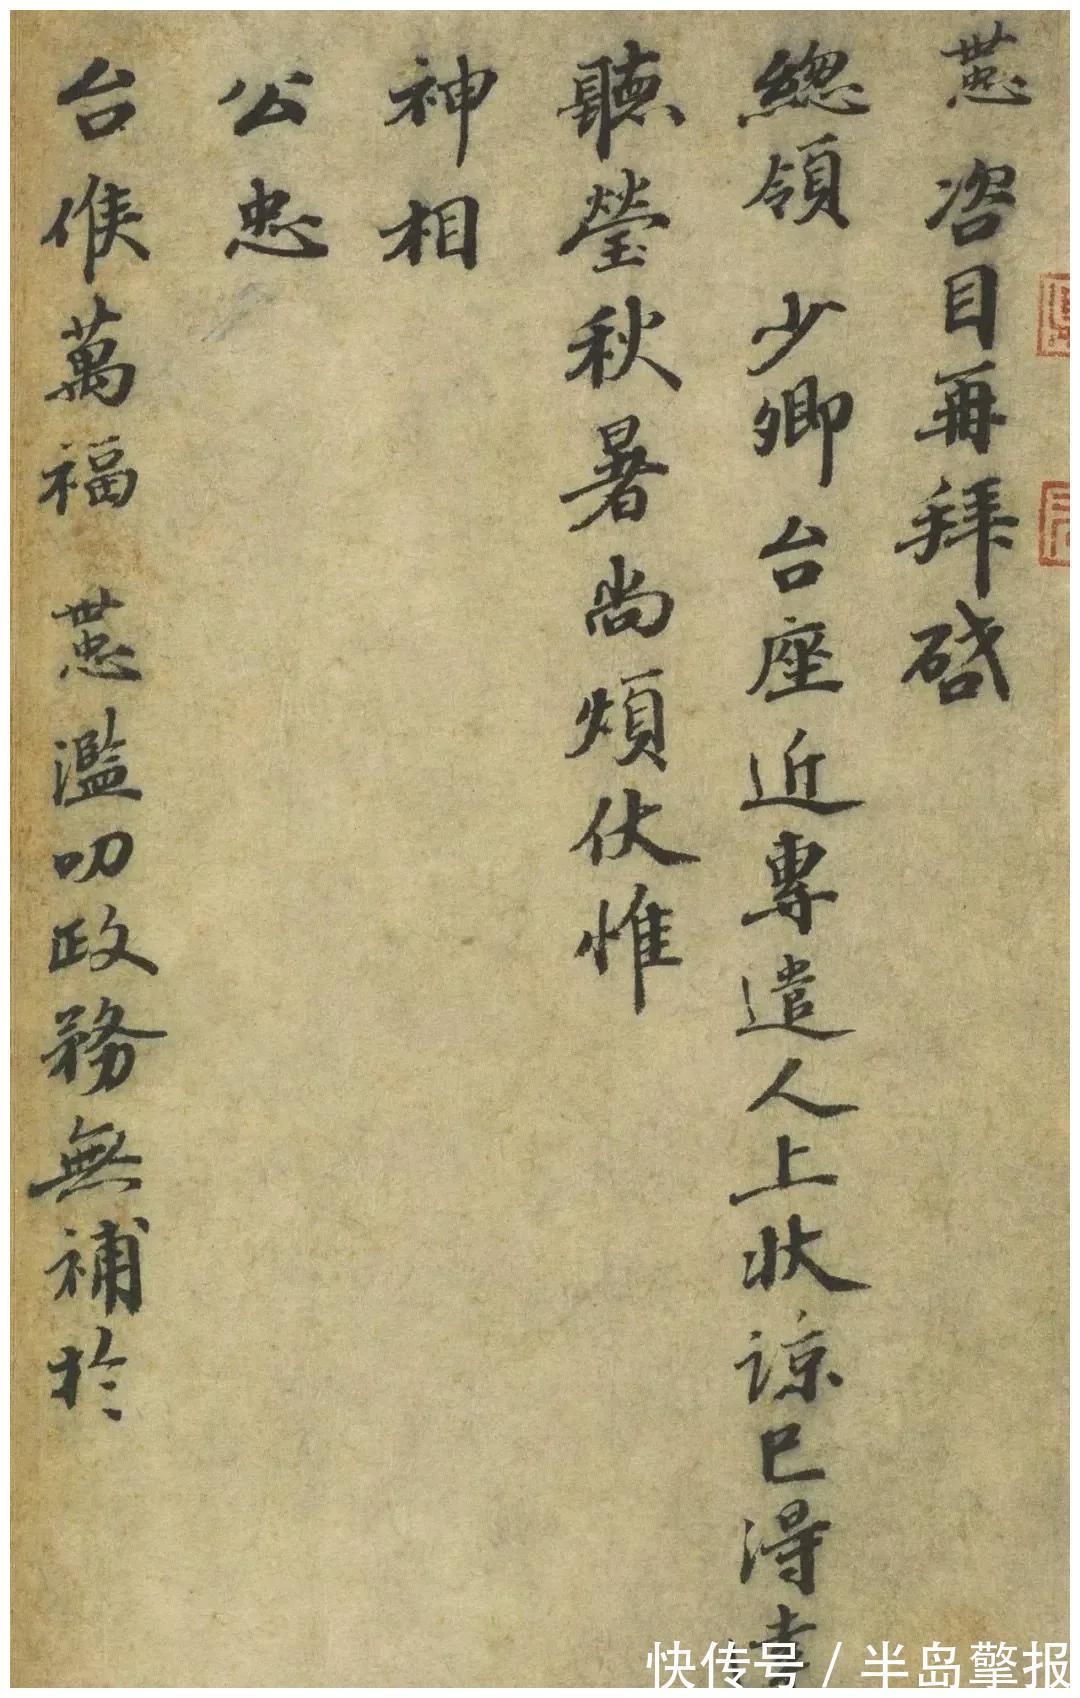 懘咨目再拜啓
總領少卿台座近專遣人上狀諒已得書
聽瑩秋暑尚煩伏惟
神相
公忠
台候萬福懘濫叨政務無補於
快传号/半岛擎报